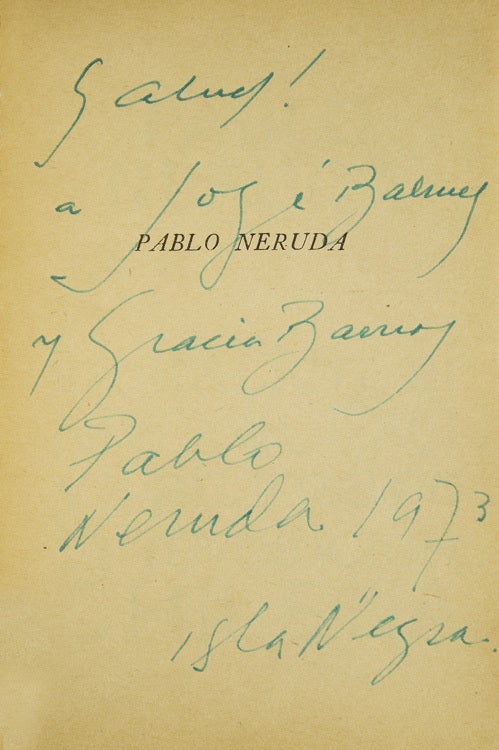 Salud!
a José Balmes
PABLO NERUDA
y Gracia Barrios
Pablo
Neruda 1973
isla Negra.